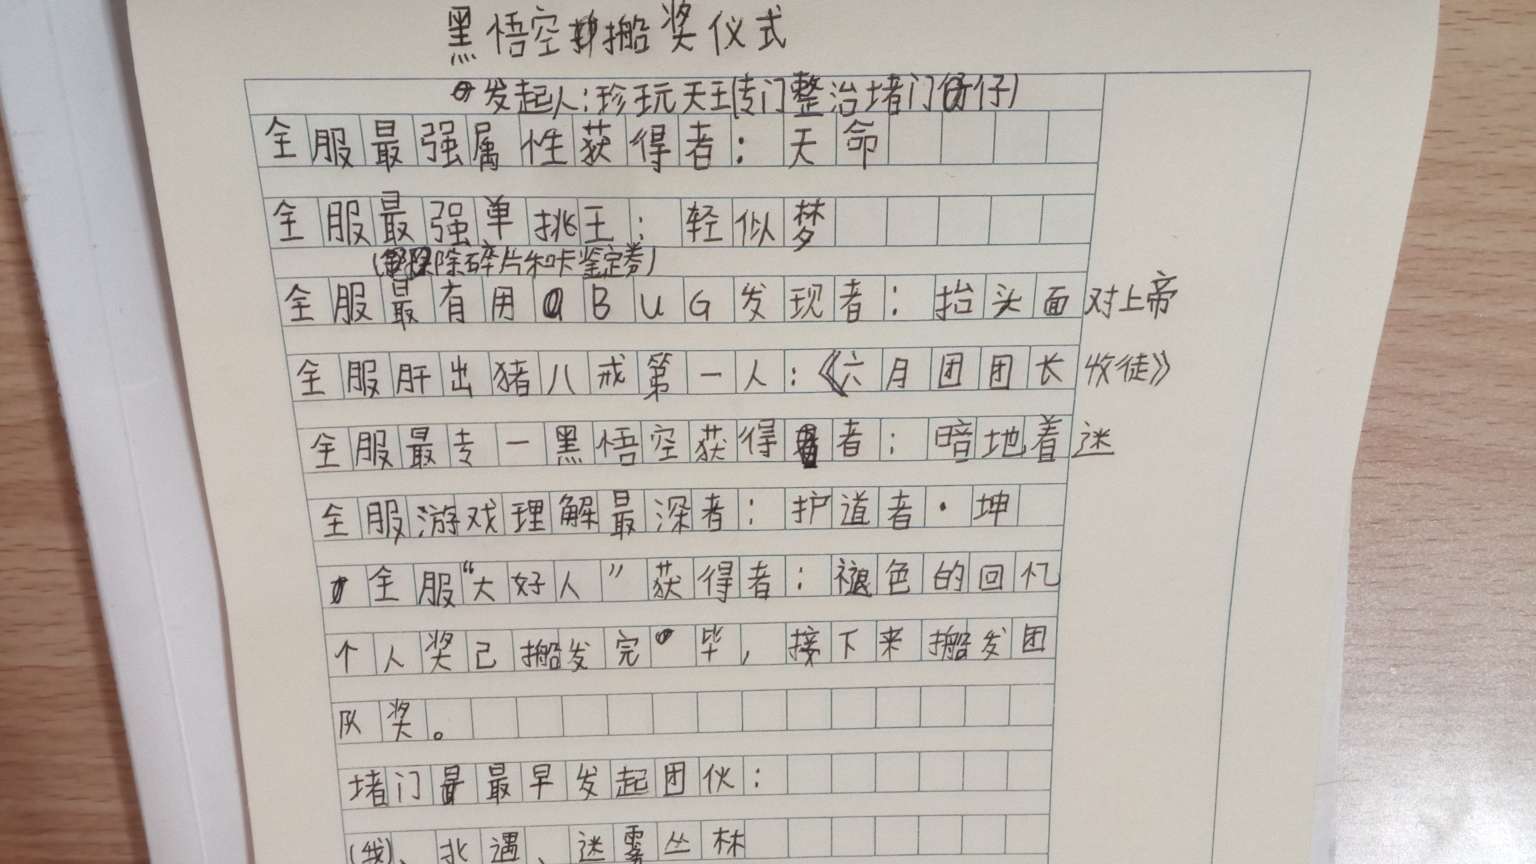 黑悟空搬奖仪式
发起人:珍玩天王(专门整治堵门仔)
全服最强属性获得者:天命
全服最强单挑王:轻似梦
(除碎片和咔鉴定券)
全服最有用BUG发现者:抬头面对上帝
全服肝出猪八戒第一人:《六月团团长收徒》
全服最专一黑悟空获得者:暗地着迷
全服游戏理解最深者:护道者·坤
全服“大好人”获得者:褪色的回忆
个人奖已搬发完毕,接下来搬发团
队奖。
堵门最早发起团伙:
(我)、北遇、迷雾丛林